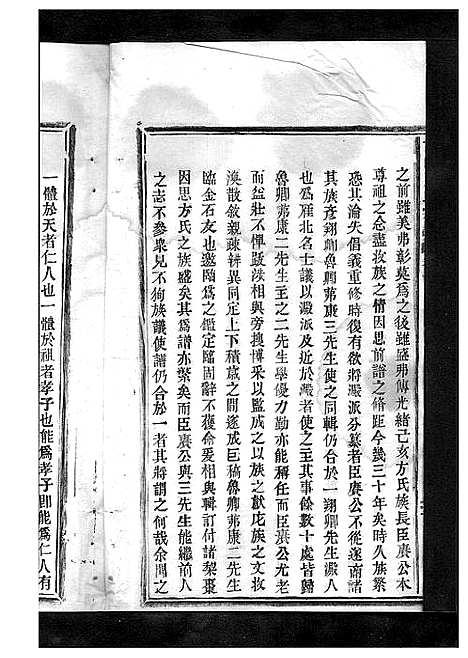 之前雖美弗彰莫為之後雖盛弗傳光緒己亥方氏族長臣賡公本
尊祖之念盡收族之情因思前譜之修距今幾三十年矣時久族繁
恐其淪失倡義重修時復有欲將澱派分纂者臣賡公不從遂商諸
其族彥翔卿魯卿弗康三先生使之同輯仍合於一翔卿先生澱人
也為雁北名士議以澱派及近於澱者使之主其事餘數十處皆歸
魯卿弗康二先生主之二先生學優力勤亦能稱任而臣賡公尤老
而益壯不憚跋涉相與旁搜博采以監成之以族之文獻尨族之文放
渙散敘親疎辨異同上下積歲之間遂成巨稿魯卿弗康二先生
臨金石友也邀臨為之鑑定臨固辭不獲僉爰相與輯訂付諸梨棗
因思方氏之族盛矣其為譜亦繁矣而臣賡公與三先生能繼前人
之志不參眾見不狥族議使譜仍合於一者其將謂之何哉余聞之
一體於天者仁人也一體於祖者孝子也能為孝子則能為仁人有